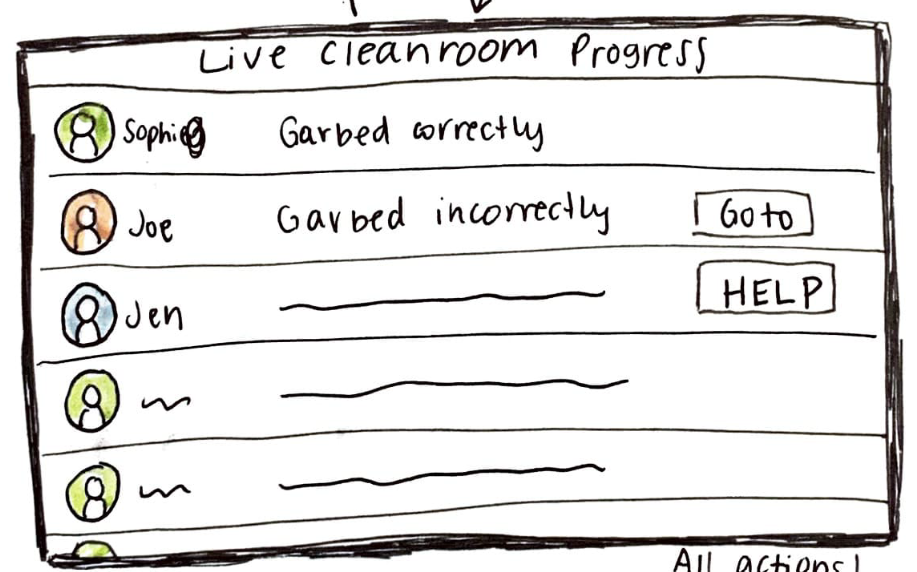 Live Cleanroom Progress
Sophie Garbed correctly
Joe Garbed incorrectly Go to
Jen HELP
All actions!